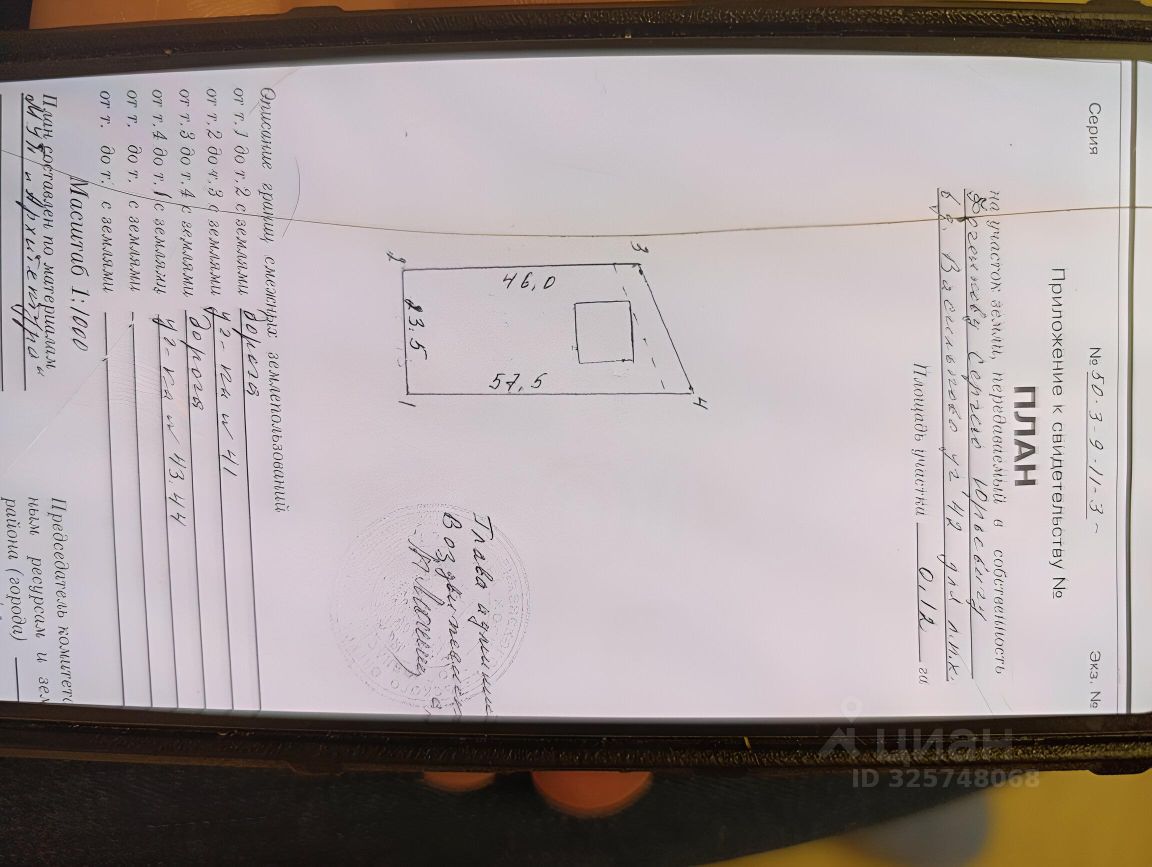 Серия № 50-3-9-11-3- Экз. №
Приложение к свидетельству №
ПЛАН
на участок земли, передаваемый в собственность
Сергею Юрьевичу
в д. Васильково уч 42 для л.п.х.
Площадь участка 0,12 га
3
4
46,0
57,5
23.5
2
1
Глава админис
Воздвиженск
Описание границ смежных землепользований
от т.1 до т.2 с землями дорога
от т.2 до т.3 с землями уч-ка N 41
от т.3 до т.4 с землями дорога
от т.4 до т.1 с землями уч-ка N 43,44
от т. до т. с землями —
от т. до т. с землями
Масштаб 1:1000
План составлен по материалам
МУП "Архитектура"
Председатель комитета
ным ресурсам и зем
района (города)
циан
ID 325748068